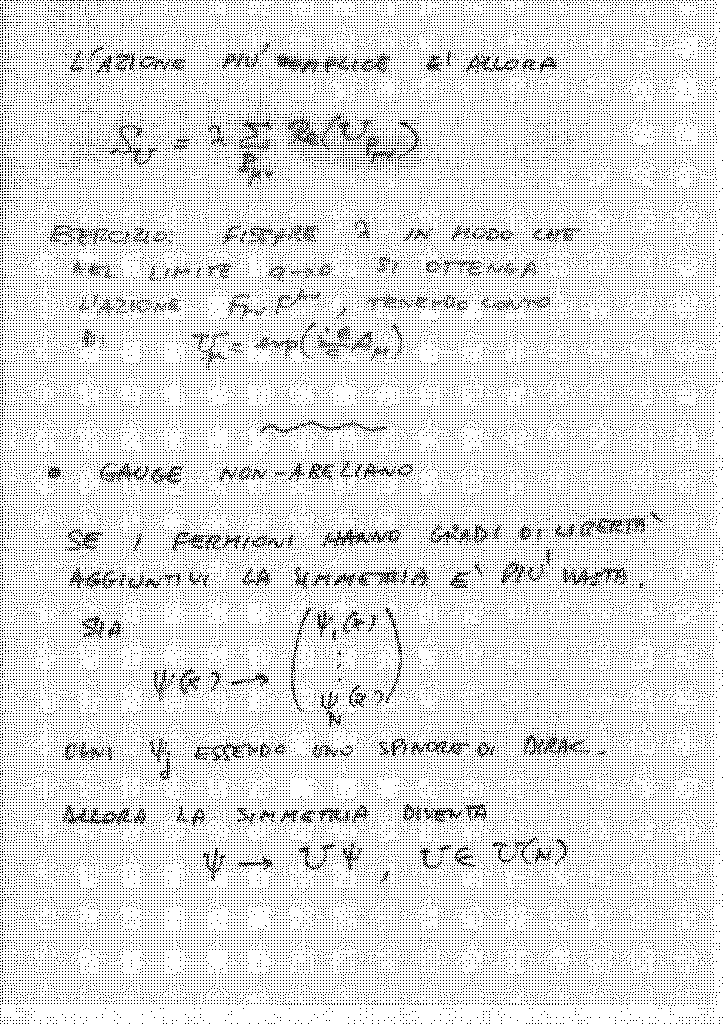 L'AZIONE PIU' SEMPLICE E' ALLORA
= λ Σ Re(U_{P_{μν}})
ESERCIZIO. FISSARE λ IN MODO CHE
NEL LIMITE a→0 SI OTTENGA
L'AZIONE F_{μν} F^{μν}, TENENDO CONTO
DI U_μ = exp(A_μ)
• GAUGE NON-ABELIANO
SE I FERMIONI HANNO GRADI DI LIBERTA'
AGGIUNTIVI LA SIMMETRIA E' PIU' VASTA.
SIA
ψ(x) → ( ψ_1(x) ⋮ ψ_N(x) )
OGNI ψ_j ESSENDO UNO SPINORE DI DIRAC.
ALLORA LA SIMMETRIA DIVENTA
ψ → U ψ, U ∈ U(N)